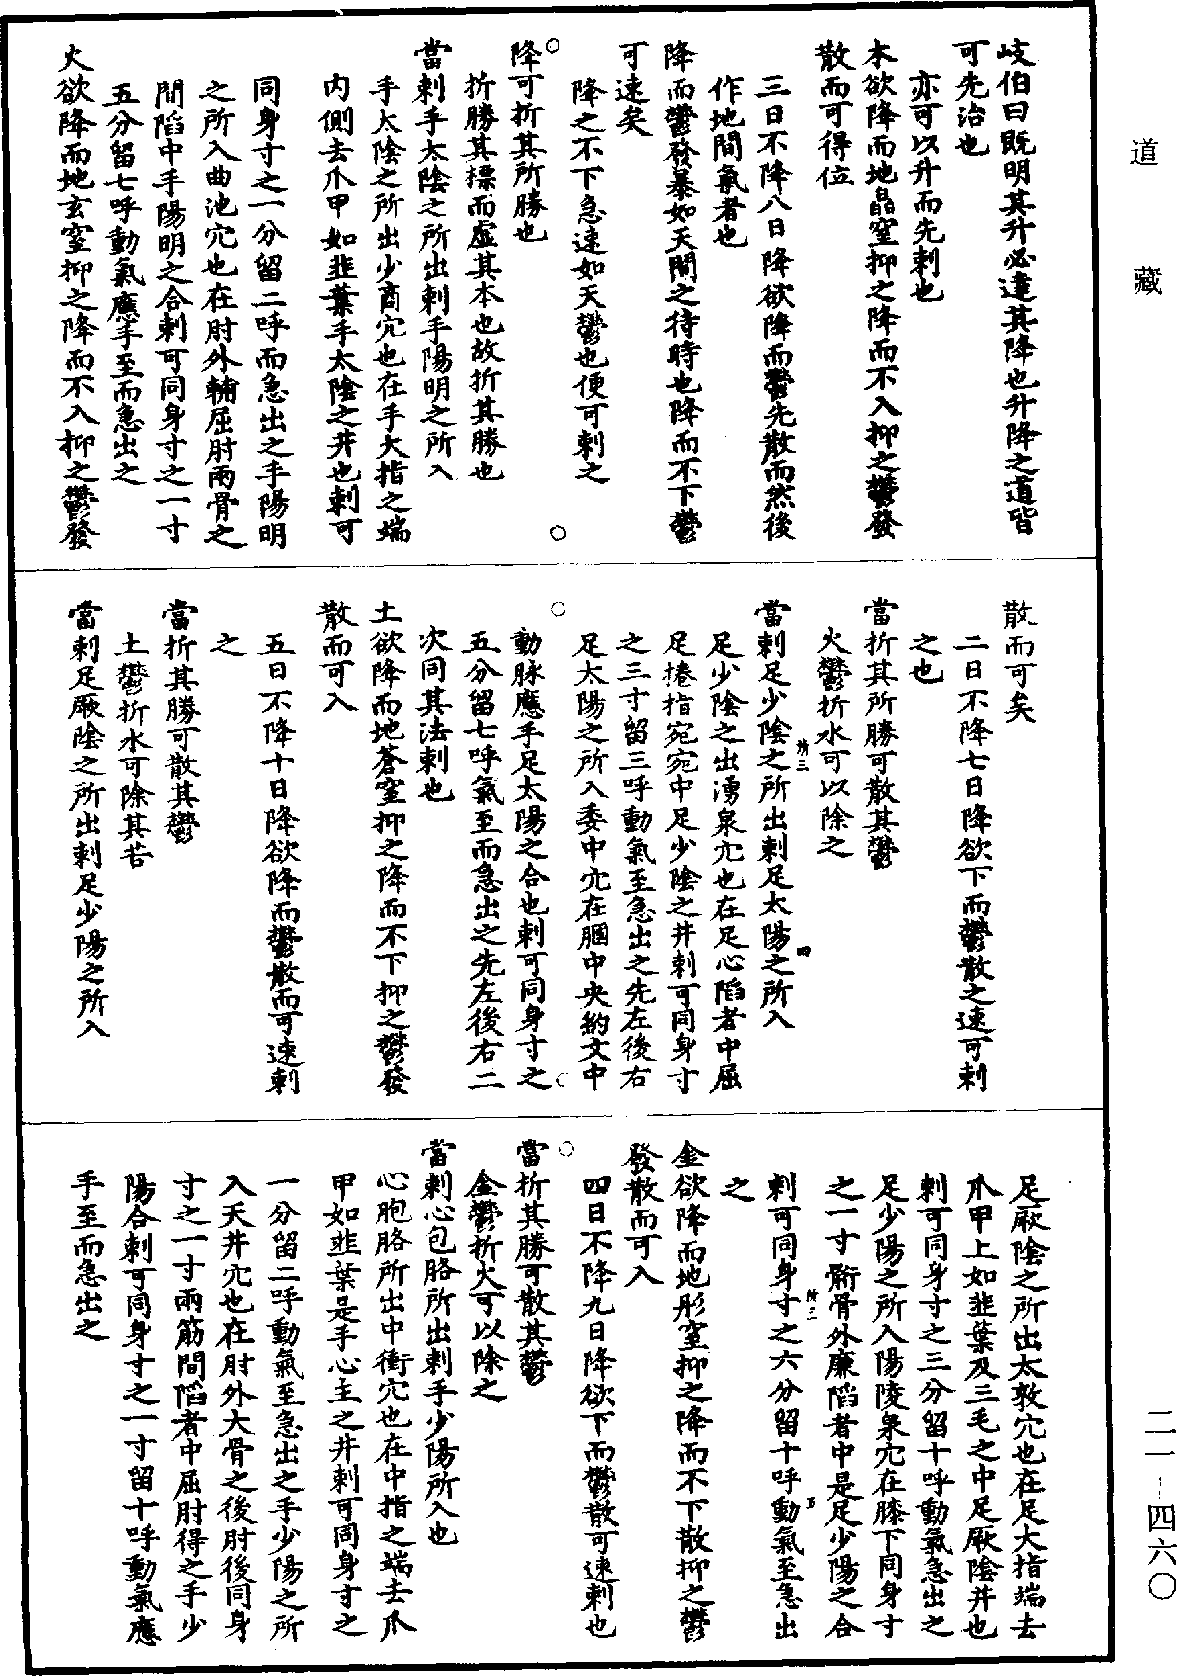 道藏
岐伯曰既明其升必達其降也升降之道皆
可先治也
亦可以升而先刺也
木欲降而地晶窒抑之降而不入抑之鬱發
散而可得位
三日不降八日降欲降而鬱先散而然後
作地間氣者也
降而鬱發暴如天間之待時也降而不下鬱
可速矣
降之不下急速如天鬱也便可刺之
降可折其所勝也
折勝其摽而虛其本也故折其勝也
當刺手太陰之所出刺手陽明之所入
手太陰之所出少商穴也在手大指之端
内側去爪甲如韭葉手太陰之井也刺可
同身寸之一分留二呼而急出之手陽明
之所入曲池穴也在肘外輔屈肘兩骨之
間陷中手陽明之合刺可同身寸之一寸
五分留七呼動氣應手至而急出之
火欲降而地玄窒抑之降而不入抑之鬱發
散而可矣
二日不降七日降欲下而鬱散之速可刺
之也
當折其所勝可散其鬱
火鬱折水可以除之
當刺足少陰之所出刺足太陽之所入
足少陰之出湧泉穴也在足心陷者中屈
足捲指宛宛中足少陰之井刺可同身寸
之三寸留三呼動氣至急出之先左後右
足太陽之所入委中穴在膕中央約文中
動脉應手足太陽之合也刺可同身寸之
五分留七呼氣至而急出之先左後右二
次同其法刺也
土欲降而地蒼窒抑之降而不下抑之鬱發
散而可入
五日不降十日降欲降而鬱散而可速刺
之
當折其勝可散其鬱
土鬱折水可除其苦
當刺足厥陰之所出刺足少陽之所入
足厥陰之所出太敦穴也在足大指端去
爪甲上如韭葉及三毛之中足厥陰井也
刺可同身寸之三分留十呼動氣急出之
足少陽之所入陽陵泉穴在膝下同身寸
之一寸䯒骨外廉陷者中是足少陽之合
刺可同身寸之六分留十呼動氣至急出
之
金欲降而地彤窒抑之降而不下散抑之鬱
發散而可入
四日不降九日降欲下而鬱散可速刺也
當折其勝可散其鬱
金鬱折火可以除之
當刺心包胳所出刺手少陽所入也
心胞胳所出中衝穴也在中指之端去爪
甲如韭葉是手心主之井刺可同身寸之
一分留二呼動氣至急出之手少陽之所
入天井穴也在肘外大骨之後肘後同身
寸之一寸兩筋間陷者中屈肘得之手少
陽合刺可同身寸之一寸留十呼動氣應
手至而急出之
二一-四六〇